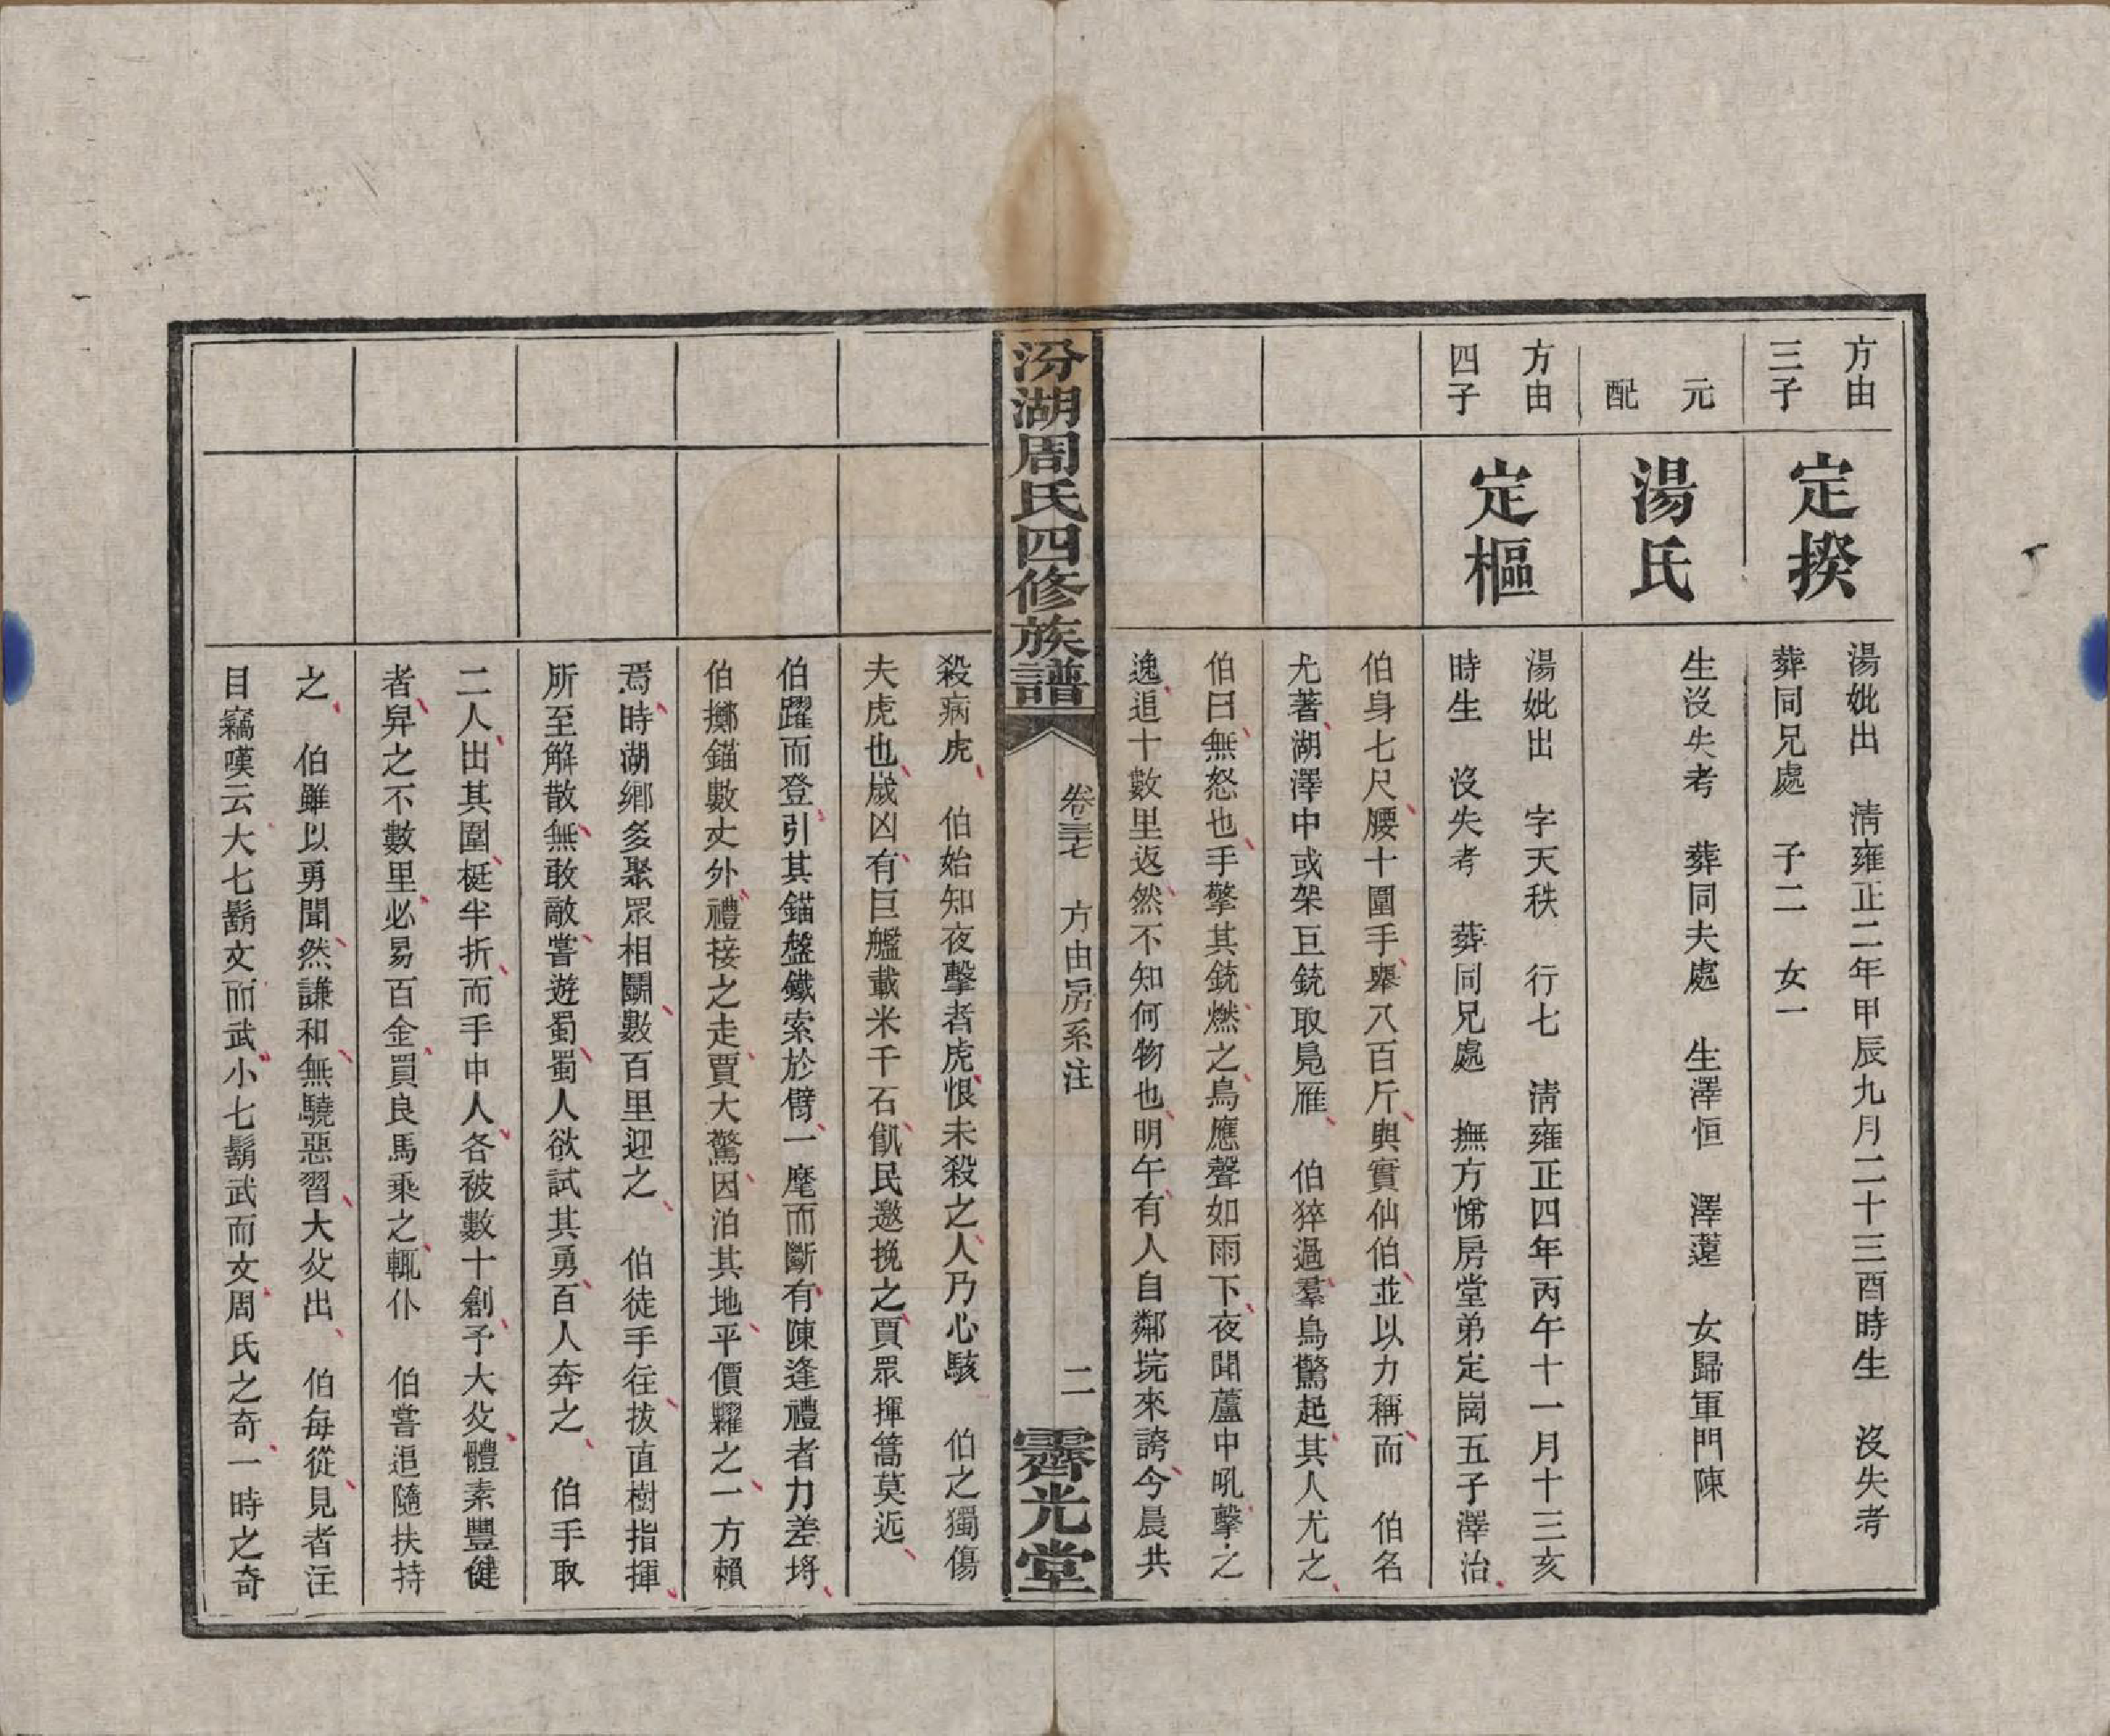 方由
三子
定揆
湯妣出　淸雍正二年甲辰九月二十三酉時生　沒失考
葬同兄處　子二　女一
元
配
湯氏
生沒失考　葬同夫處　生澤恒　澤薳　女歸軍門陳
方由
四子
定樞
湯妣出　字天秩　行七　淸雍正四年丙午十一月十三亥
時生　沒失考　葬同兄處　撫方悌房堂弟定崗五子澤治
伯身七尺腰十圍手舉八百斤與實仙伯並以力稱而　伯名
尤著湖澤中或架巨銃取鳧雁　伯猝過羣鳥驚起其人尤之
伯曰無怒也手擎其銃燃之鳥應聲如雨下夜聞蘆中吼擊之
逸追十數里返然不知何物也明午有人自鄰垸來誇今晨共
汾湖周氏四修族譜
卷三七　方由房系注
二
霽光堂
殺病虎　伯始知夜擊者虎恨未殺之人乃心駭　伯之獨傷
夫虎也歲凶有巨艦載米千石飢民邀挽之賈眾揮篙莫近
伯躍而登引其錨盤鐵索於臂一麾而斷有陳逢禮者力差埒
伯擲錨數丈外禮接之走賈大驚因泊其地平價糶之一方賴
焉時湖鄉多聚眾相鬬數百里迎之　伯徒手往拔直樹指揮
所至解散無敢敵嘗遊蜀蜀人欲試其勇百人奔之　伯手取
二人出其圍梃半折而手中人各被數十創予大父體素豐健
者舁之不數里必易百金買良馬乘之輒仆　伯嘗追隨扶持
之　伯雖以勇聞然謙和無驍惡習大父出　伯每從見者注
目竊嘆云大七鬍文而武小七鬍武而文周氏之奇一時之奇